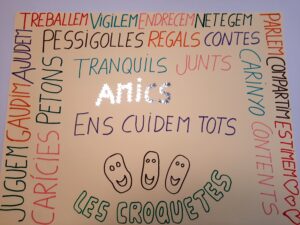 TREBALLEM VIGILEM ENDRECEM NETEGEM
PESSIGOLLES REGALS CONTES
TRANQUILS JUNTS
AMICS
ENS CUIDEM TOTS
LES CROQUETES
JUGUEM GAUDIM AJUDEM
CARÍCIES PETONS
CARINYO CONTENTS
PARLEM COMPARTIM ESTIMEM